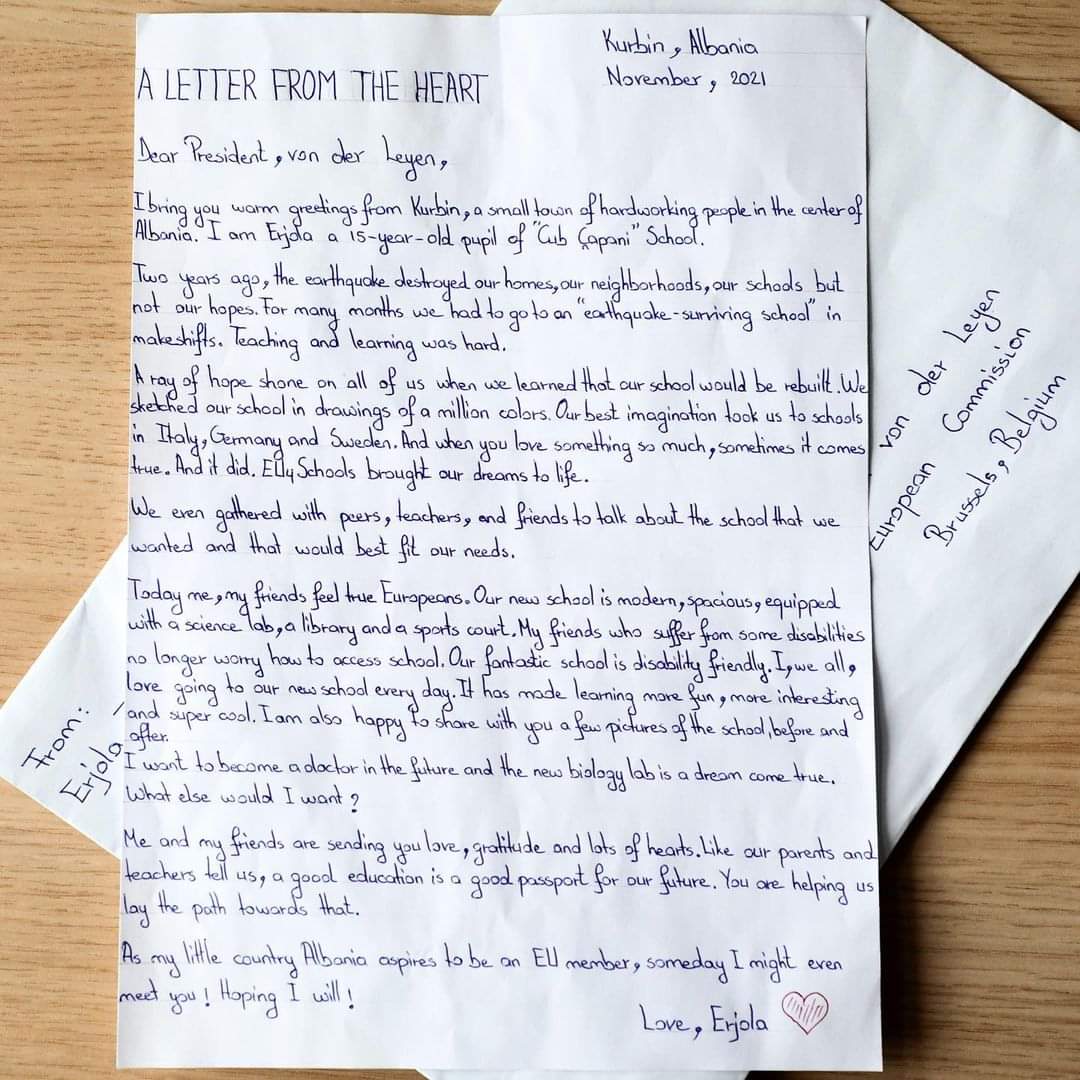 Kurbin, Albania
November, 2021
A LETTER FROM THE HEART
Dear President, von der Leyen,
I bring you warm greetings from Kurbin, a small town of hardworking people in the center of
Albania. I am Erjola a 15-year-old pupil of "Cub Çapani" School.
Two years ago, the earthquake destroyed our homes, our neighborhoods, our schools but
not our hopes. For many months we had to go to an "earthquake-surviving school" in
makeshifts. Teaching and learning was hard.
A ray of hope shone on all of us when we learned that our school would be rebuilt. We
sketched our school in drawings of a million colors. Our best imagination took us to schools
in Italy, Germany and Sweden. And when you love something so much, sometimes it comes
true. And it did. EU4Schools brought our dreams to life.
We even gathered with peers, teachers, and friends to talk about the school that we
wanted and that would best fit our needs.
Today me, my friends feel true Europeans. Our new school is modern, spacious, equipped
with a science lab, a library and a sports court. My friends who suffer from some disabilities
no longer worry how to access school. Our fantastic school is disability friendly. I, we all,
love going to our new school every day. It has made learning more fun, more interesting
and super cool. I am also happy to share with you a few pictures of the school, before and
after.
I want to become a doctor in the future and the new biology lab is a dream come true.
What else would I want?
Me and my friends are sending you love, gratitude and lots of hearts. Like our parents and
teachers tell us, a good education is a good passport for our future. You are helping us
lay the path towards that.
As my little country Albania aspires to be an EU member, someday I might even
meet you! Hoping I will!
Love, Erjola
From:
Erjola
von der Leyen
European Commission
Brussels, Belgium